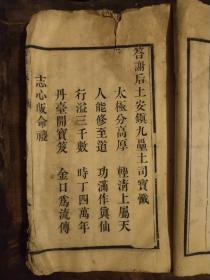 答謝后土安鎮九壘土司寶懺
太極分高厚　輕清上屬天
人能修至道　功滿作眞仙
行溢三千數　時丁四萬年
丹臺開寶笈　金口爲流傳
志心皈命禮